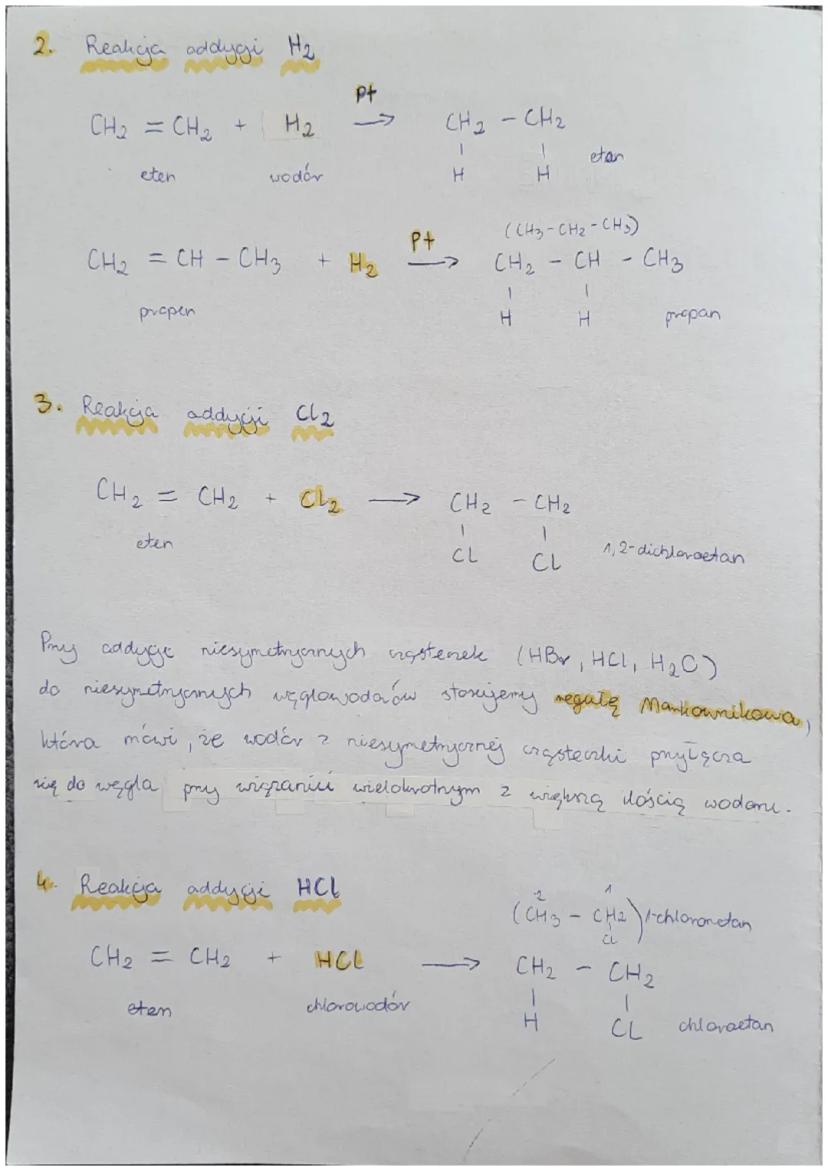 2. Reakcja addycji H2
CH2 = CH2 + H2 Pt → CH2 - CH2
eten wodór H H etan
(CH3-CH2-CH3)
CH2 = CH - CH3 + H2 Pt → CH2 - CH - CH3
propen H H propan
3. Reakcja addycji Cl2
CH2 = CH2 + Cl2 → CH2 - CH2
eten Cl Cl 1,2-dichloroetan
Przy addycji niesymetrycznych cząsteczek (HBr, HCl, H2O)
do niesymetrycznych węglowodorów stosujemy regułę Markownikowa,
która mówi, że wodór z niesymetrycznej cząsteczki przyłącza
się do węgla przy wiązaniu wielokrotnym z większą ilością wodoru.
4. Reakcja addycji HCl
2 1
(CH3 - CH2) 1-chloroetan
Cl
CH2 = CH2 + HCl → CH2 - CH2
eten chlorowodór H Cl chloroetan